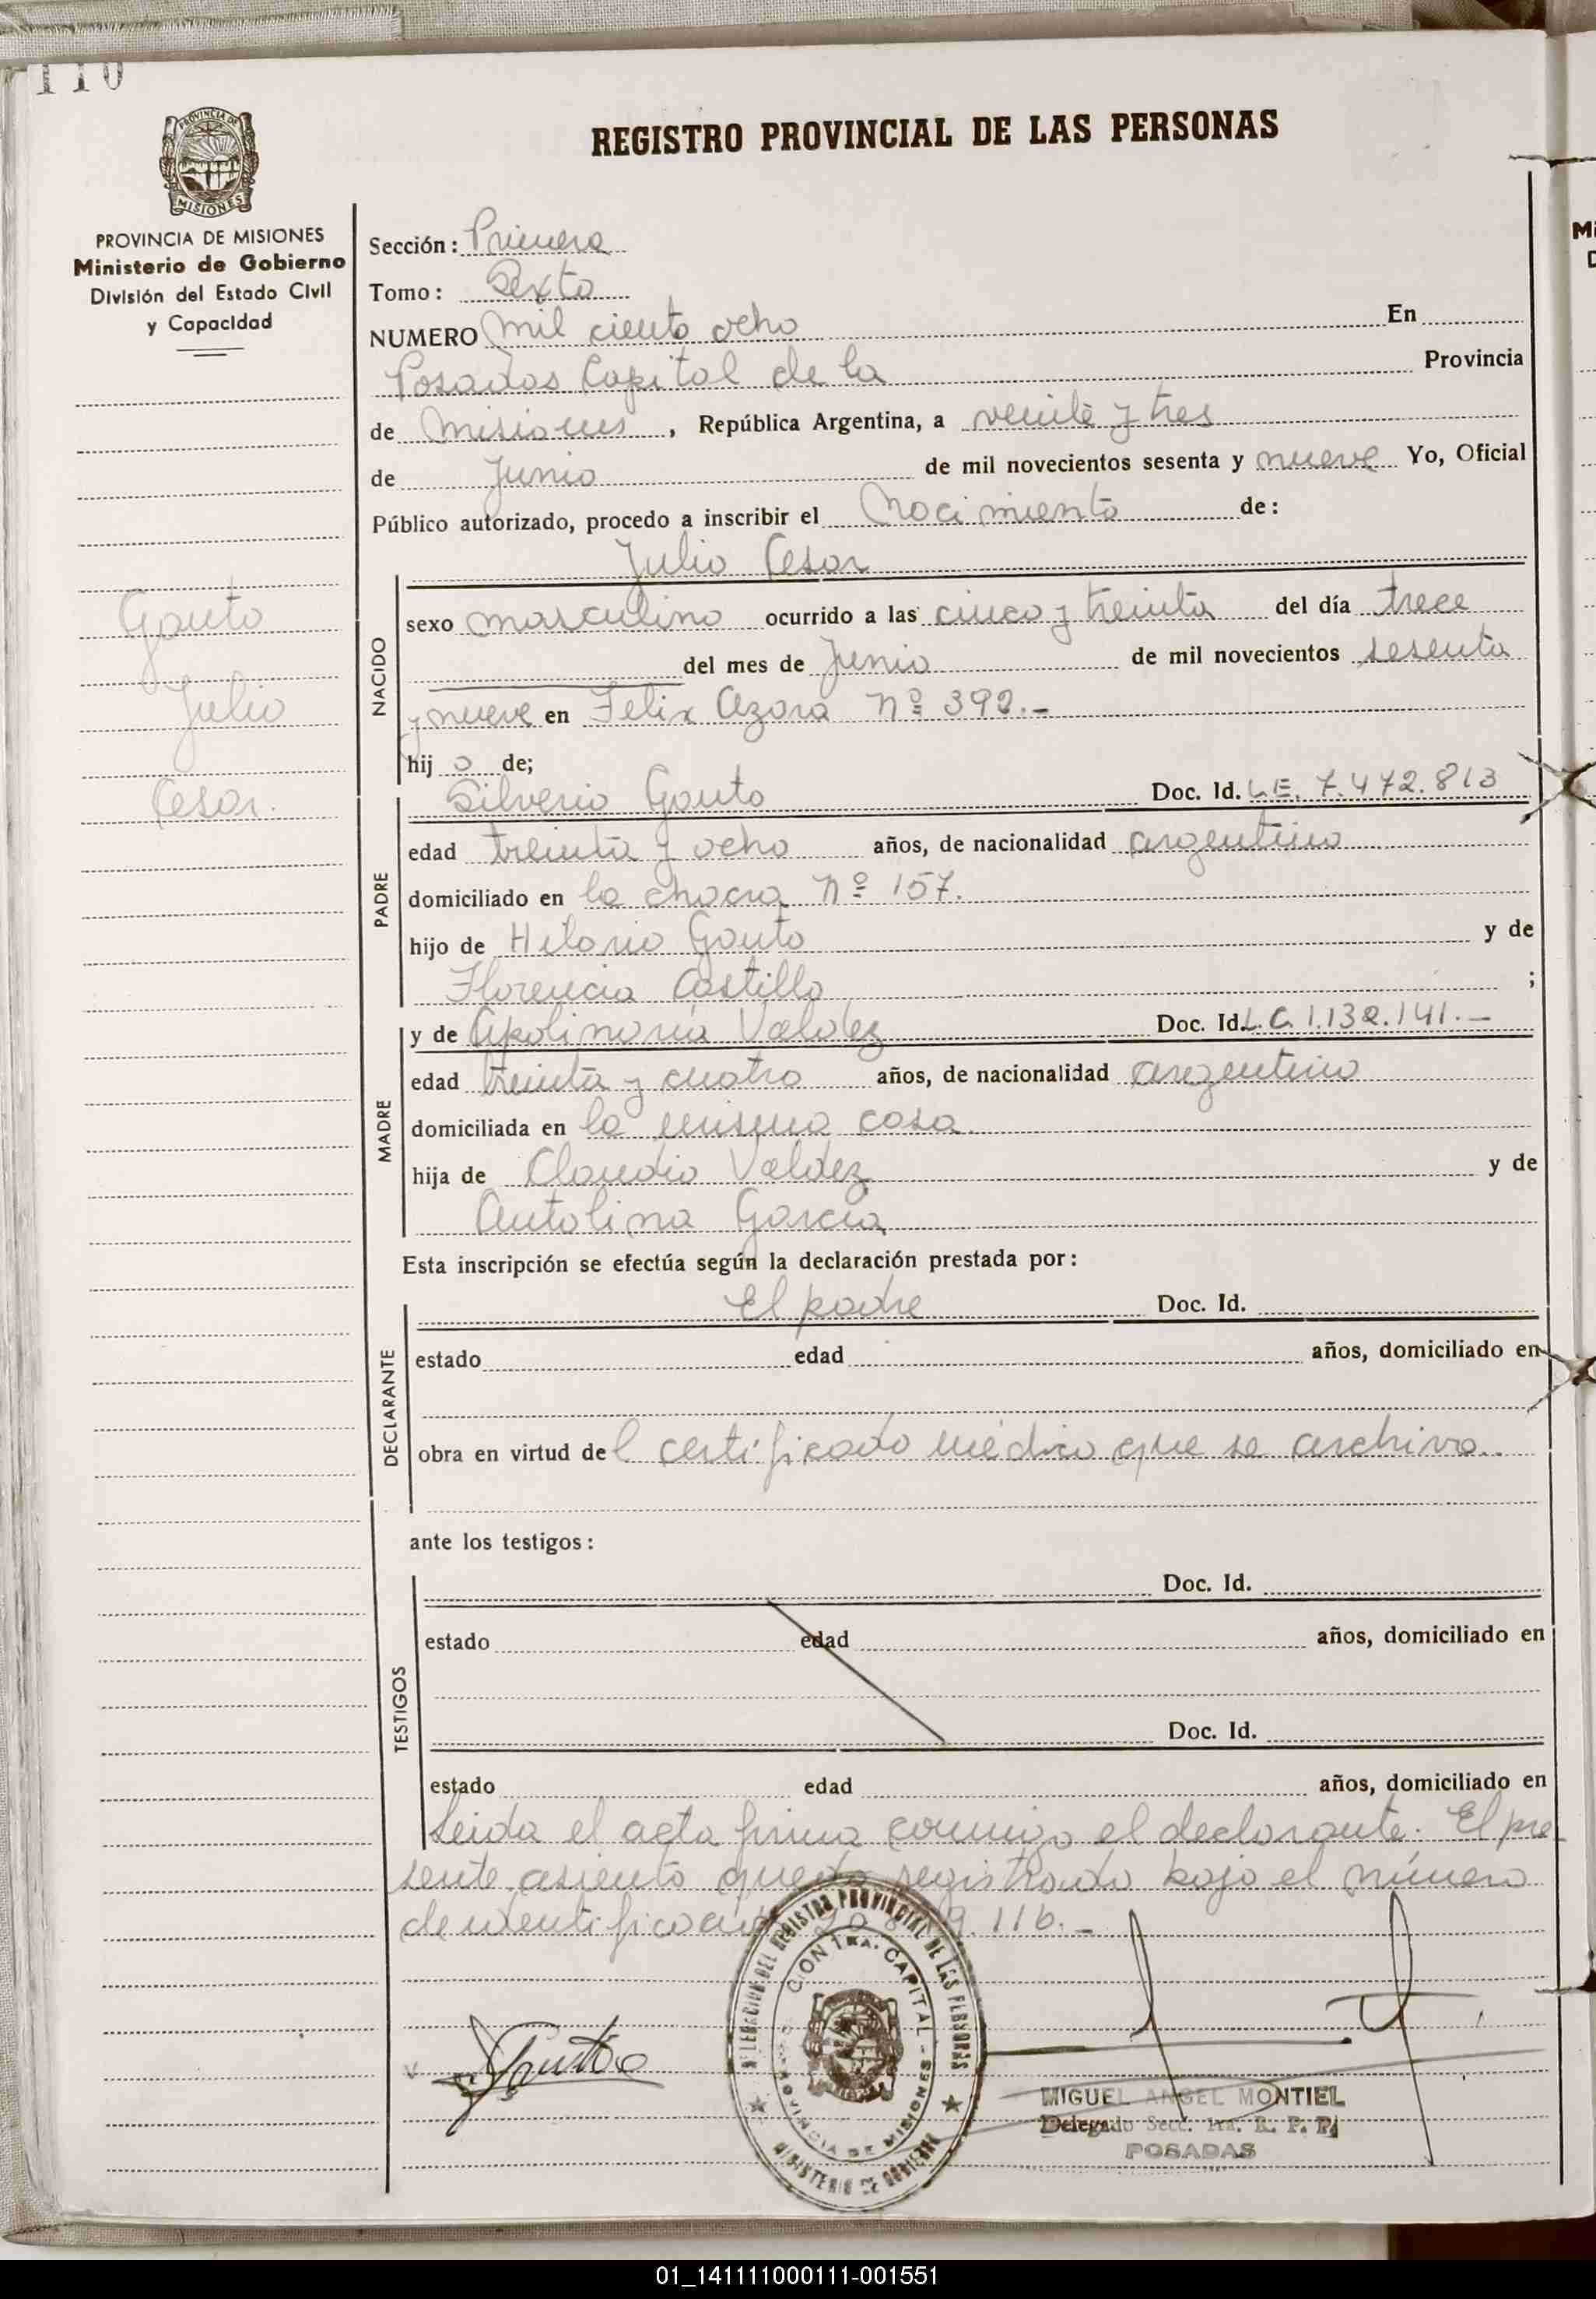 110
PROVINCIA DE MISIONES
PROVINCIA DE MISIONES
Ministerio de Gobierno
División del Estado Civil
y Capacidad
REGISTRO PROVINCIAL DE LAS PERSONAS
Sección: Primera
Tomo: Sexto
NUMERO mil ciento ocho En
Posadas Capital de la Provincia
de Misiones, República Argentina, a veinte y tres
de Junio de mil novecientos sesenta y nueve Yo, Oficial
Público autorizado, procedo a inscribir el Nacimiento de:
Julio Cesar
Gauto
Julio
Cesar.
NACIDO
sexo masculino ocurrido a las cinco y treinta del día trece
del mes de Junio de mil novecientos sesenta
y nueve en Felix Azara Nº 392.-
hijo de;
PADRE
Silverio Gauto Doc. Id. L.E. 7.472.813
edad treinta y ocho años, de nacionalidad argentino
domiciliado en la chacra Nº 157.
hijo de Hilario Gauto y de
Florencia Castillo ;
MADRE
y de Apolinaria Valdez Doc. Id. L.C. 1.132.141.-
edad treinta y cuatro años, de nacionalidad argentino
domiciliada en la misma casa
hija de Claudio Valdez y de
Antolina García
Esta inscripción se efectúa según la declaración prestada por:
DECLARANTE
El padre Doc. Id.
estado edad años, domiciliado en
obra en virtud del certificado médico que se archiva.
ante los testigos:
TESTIGOS
Doc. Id.
estado edad años, domiciliado en
Doc. Id.
estado edad años, domiciliado en
Leida el acta firma conmigo el declarante. El pre
sente asiento queda registrado bajo el número
de identificación 116.-
Gauto
DELEGACION DEL REGISTRO PROVINCIAL DE LAS PERSONAS
CONTRA. CAPITAL - PROVINCIA DE MISIONES
MINISTERIO DE GOBIERNO
MIGUEL ANGEL MONTIEL
Delegado Secc. 1ra. R. P. P.
POSADAS
01_141111000111-001551